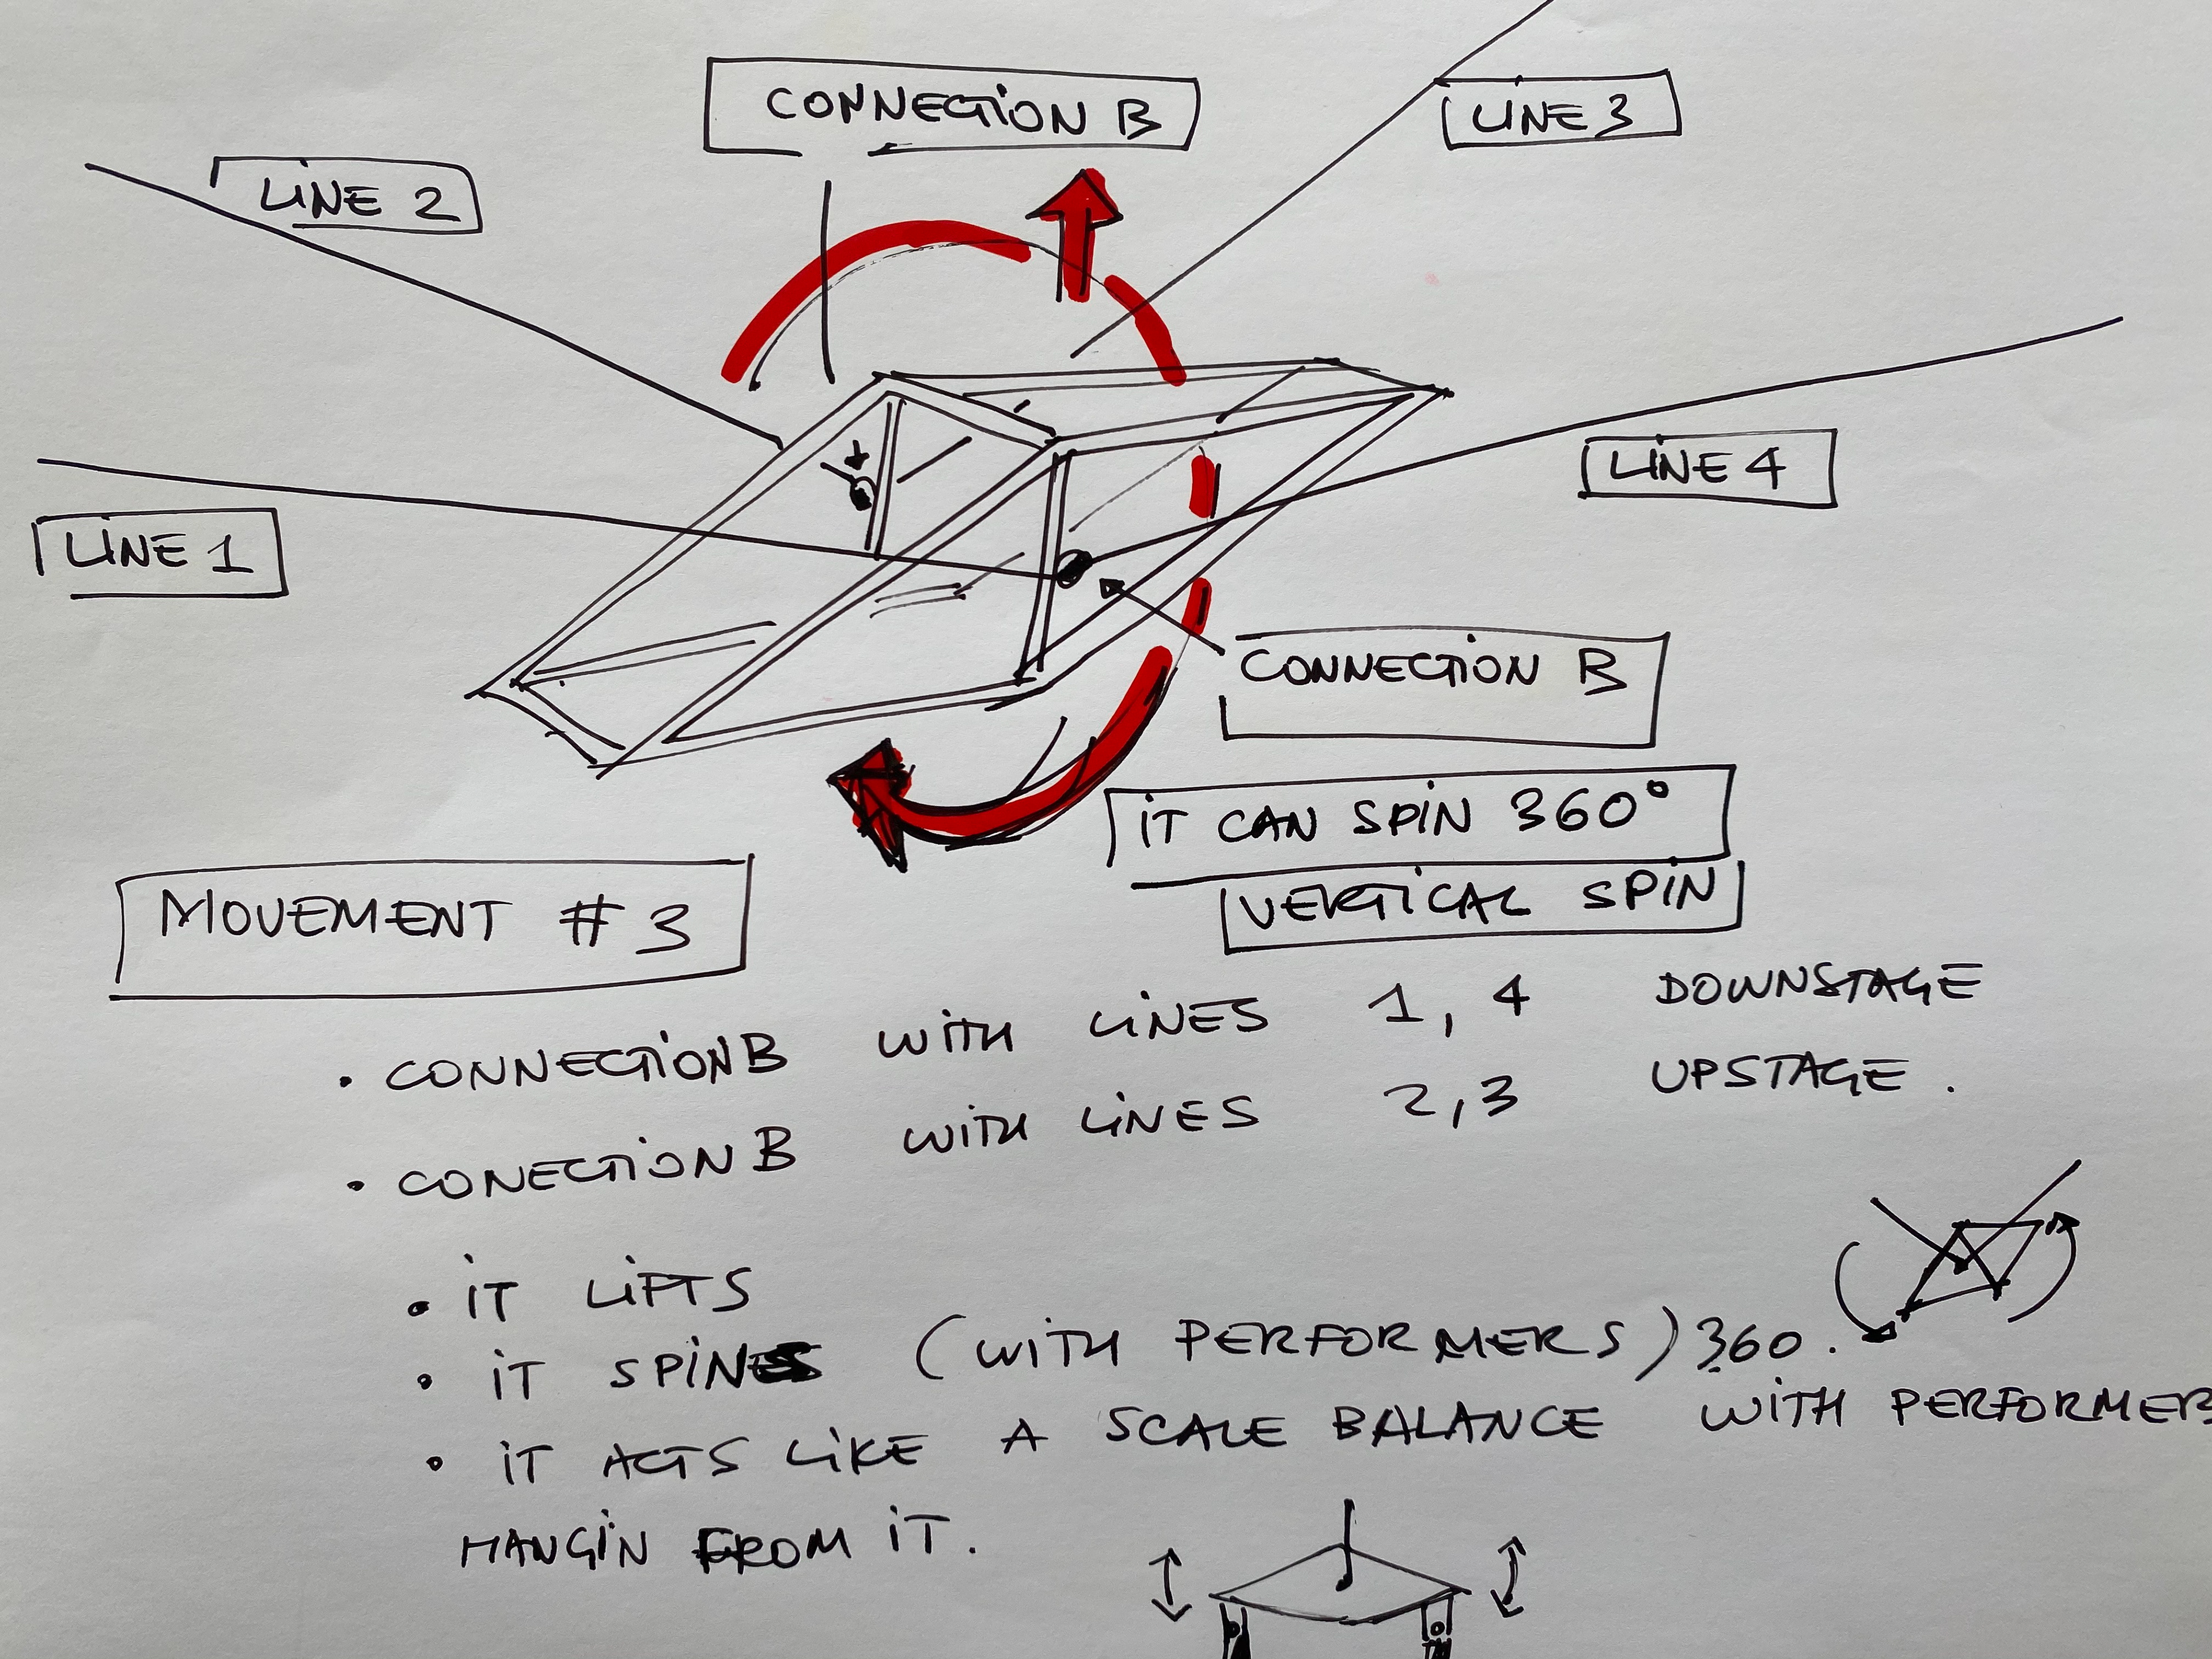 CONNECTION B
LINE 3
LINE 2
LINE 4
LINE 1
CONNECTION B
IT CAN SPIN 360°
VERTICAL SPIN
MOVEMENT #3
• CONNECTION B WITH LINES 1, 4 DOWNSTAGE
• CONECTION B WITH LINES 2, 3 UPSTAGE.
• IT LIFTS
• IT SPINS (WITH PERFORMERS) 360.
• IT ACTS LIKE A SCALE BALANCE WITH PERFORMER
HANGIN FROM IT.